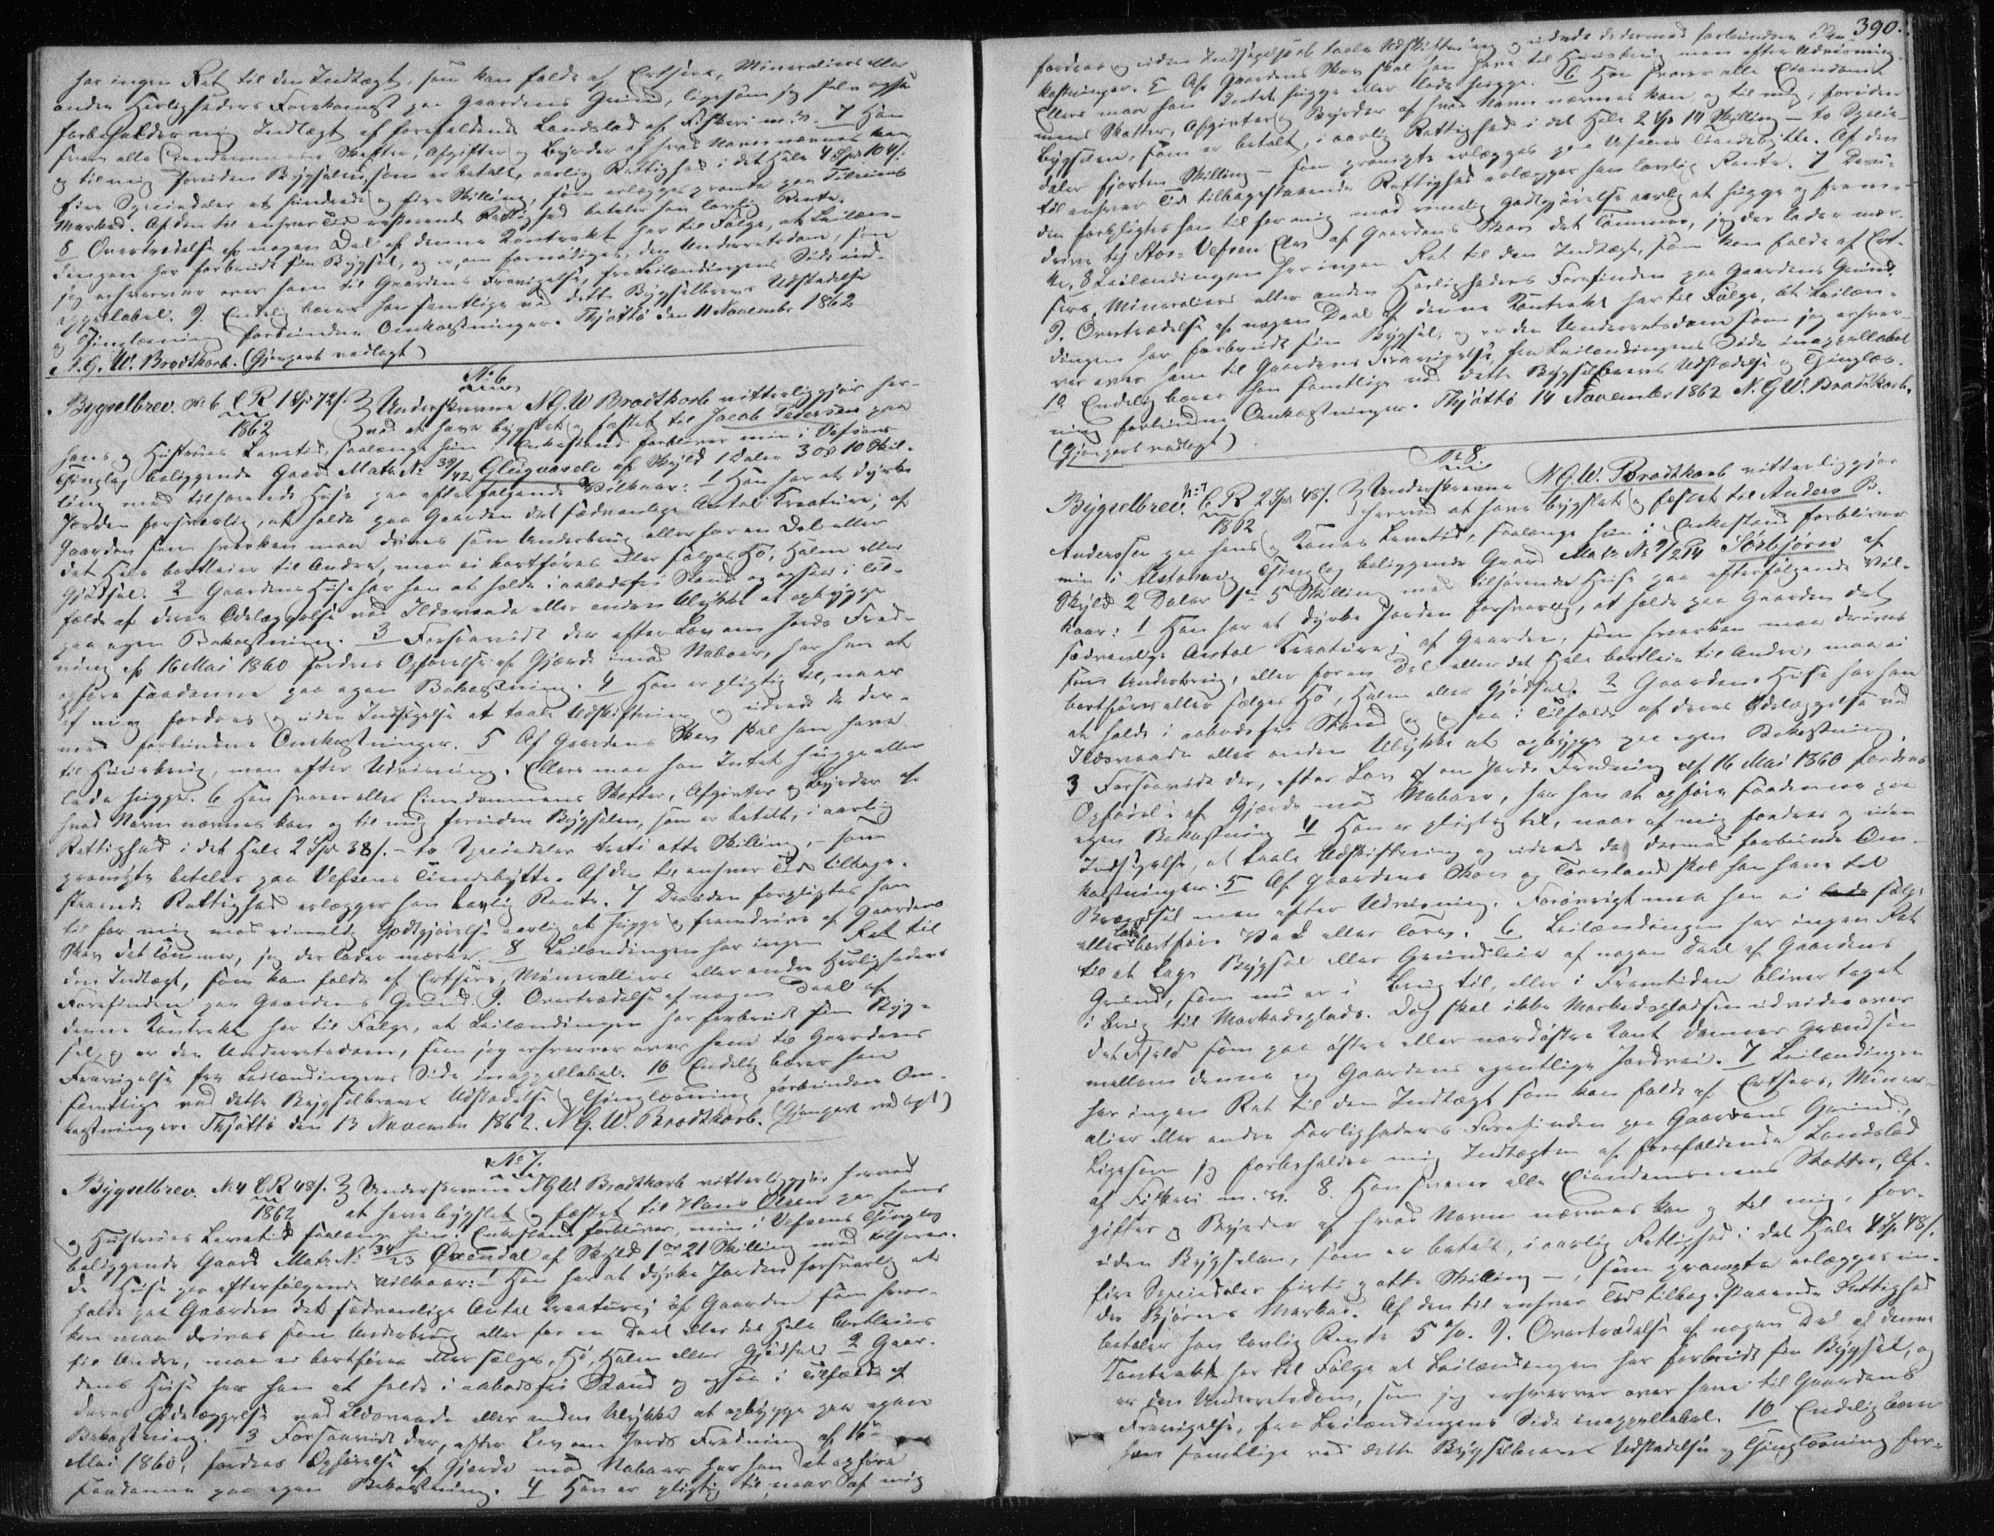 har ingen Ret til den Indtægt, som kan falde af Ertser, Mineralier eller
anden Herligheders Forekomst paa Gaardens Grund, ligesom jeg selv ogsaa
forbeholder mig Indtægt af forefaldende Landslod af Fiskeri m. v. 7 Han
svarer alle Eiendommens Skatter, Afgifter og Byrder af hvad Navn nævnes kan
og til mig foruden Bygselen, som er betalt, aarlig Rettighed i det Hele 4 Spd 104 s.
fire Speciedaler et hundrede og fire Skilling, som erlægges promte paa
Marked. Af den til enhver Tid resterende Rettighed betaler han lovlig Rente.
8 Overtrædelse af nogen Del af denne Kontrakt har til Følge, at Leilæn-
dingen har forbrudt sin Bygsel, og er, om fornødiges, den Underretsdom, som
jeg erhverver over ham til Gaardens Fravigelse, fra Leilændingens Side in-
appellabel. 9. Endelig bærer han samtlige ved dette Bygselbrevs Udstedelse
og Thinglæsning forbundne Omkostninger. Thjøttø den 11 November 1862
N. G. W. Brodtkorb. (Gjenpart vedlagt)
No 6
Bygselbrev. No 6 C.R. 1 Spd 72 s. Underskrevne N G W Brodtkorb vitterliggjør her-
1862 ved at have bygslet og fæstet til Jacob Pedersen paa
hans og Hustrues Levetid, saalænge hun i Enkestand forbliver min i Vefsens
Thinglag beliggende Gaard Matr. No 39/42 Glugvasli af Skyld 1 Daler 3 Ort 10 Skil-
ling med tilhørende Huse paa efterfølgende Vilkaar: 1 Han har at dyrke
Jorden forsvarlig, at holde paa Gaarden det sædvanlige Antal Kreature; af
Gaarden som hverken maa drives som Underbrug eller for en Del eller
det Hele bortleies til Andre, maa ei bortføres eller sælges Hø, Halm eller
Gjødsel. 2 Gaardens Huse har han at holde i aabodsfri Stand og ogsaa i Til-
fælde af deres Ødelæggelse ved Ildsvaade eller anden Ulykke at opbygge
paa egen Bekostning. 3 Forsaavidt der efter Lov om Jords Fred-
ning af 16 Mai 1860 fordres Opførelse af Gjærde imod Naboer, har han at
opføre saadanne paa egen Bekostning. 4 Han er pligtig til, naar
af mig fordres og uden Indsigelse at taale Udskiftning og udrede de der-
med forbundne Omkostninger. 5 Af Gaardens Skov skal han have
til Huusbrug, men efter Udvisning. Ellers maa han Intet hugge eller
lade hugge. 6 Han svarer alle Eiendommens Skatter, Afgifter og Byrder af
hvad Navn nævnes kan og til mig foruden Bygselen, som er betalt, i aarlig
Rettighed i det Hele 2 Spd 38 s. – to Speciedaler treti otte Skilling, – som
prompte betales paa Vefsens Tiendebytte. Af den til enhver Tid tilbage-
staaende Rettighed erlægger han lovlig Rente. 7 Desuden forpligtes han
til for mig mod rimelig Godtgjørelse aarlig at hugge og fremdrive af Gaardens
Skov det Tømmer, jeg der lader mærke. 8 Leilændingen har ingen Ret til
den Indtægt, som kan falde af Ertser, Mineralier eller andre Herligheders
Forefinden paa Gaardens Grund. 9. Overtrædelse af nogen Deel af
denne Kontrakt har til Følge, at Leilændingen har forbrudt sin Byg-
sel, og er den Underretsdom, som jeg erhverver over ham til Gaardens
Fravigelse fra Leilændingens Side inappellabel. 10 Endelig bærer han
samtlige ved dette Bygselbrevs Udstedelse og Thinglæsning forbundne Om-
kostninger. Thjøttø den 13 November 1862. N. G. W. Brodtkorb. (Gjenpart vedlagt)
No 7.
Bygselbrev. No 4 C.R. 48 s. Underskrevne N G W. Brodtkorb vitterliggjør herved
1862 at have bygslet og fæstet til Hans Olsen paa hans
og Hustrues Levetid saalænge hun i Enkestand forbliver, min i Vefsens Thinglag
beliggende Gaard Matr. No 34/23 Øxendal af Skyld 1 Ort 21 Skilling med tilhøren-
de Huse paa efterfølgende Vilkaar: 1 Han har at dyrke Jorden forsvarlig at
holde paa Gaarden det sædvanlige Antal Kreature; af Gaarden som hver-
ken maa drives som Underbrug eller for en Deel eller det Hele bortleies
til Andre, maa ei bortføres eller sælges, Hø, Halm eller Gjødsel. 2 Gaar-
dens Huse har han at holde i aabodsfri Stand og ogsaa i Tilfælde af
deres Ødelæggelse ved Ildsvaade eller anden Ulykke at opbygge paa egen
Bekostning. 3 Forsaavidt der, efter Lov om Jords Fredning af 16
Mai 1860, fordres Opførelse af Gjærde mod Naboer har han at opføre
saadanne paa egen Bekostning. 4 Han er pligtig til, naar af mig
390.
fordres og uden Indsigelse at taale Udskiftning og udrede de dermed forbundne Om-
kostninger. 5 Af Gaardens Skov skal han have til Huusbrug men efter Udvisning.
Ellers maa han Intet hugge eller lade hugge. 6 Han svarer alle Eiendom-
mens Skatter, Afgifter og Byrder af hvad Navn nævnes kan og til mig, foruden
Bygselen, som er betalt, i aarlig Rettighed i det Hele 2 Spd 14 Skilling – to Specie-
daler fjorten Skilling – som prompte erlægges paa Vefsens Tiendebytte. Af den
til enhver Tid tilbagestaaende Rettighed erlægger han lovlig Rente. 7 Desu-
den forpligtes han til for mig mod rimelig Godtgjørelse aarlig at hugge og frem-
drive til Stor-Vefsen Elv af Gaardens Skov det Tømmer, jeg der lader mær-
ke. 8 Leilændingen har ingen Ret til den Indtægt, som kan falde af Ert-
ser, Mineralier eller anden Herligheders Forefinden paa Gaardens Grund.
9. Overtrædelse af nogen Deel af denne Kontrakt har til Følge, at Leilæn-
dingen har forbrudt sin Bygsel, og er den Underretsdom som jeg erhver-
ver over ham til Gaardens Fravigelse, fra Leilændingens Side inappellabel
10 Endelig bærer han samtlige ved dette Bygselbrevs Udstædelse og Thinglæs-
ning forbundne Omkostninger. Thjøttø 14 November 1862 N. G W. Brodtkorb.
(Gjenpart vedlagt)
No 8
Bygselbrev. No 7 C.R. 2 Spd 48 s. Underskrevne N G W. Brodtkorb vitterliggjør
1862 herved at have bygslet og fæstet til Anders B.
Anderssen paa hans og Kones Levetid, saalænge hun i Enkestand forbliver
min i Alstahaug Thinglag beliggende Gaard Matr No 9/274 Sørbjørn af
Skyld 2 Daler 1 Ort 5 Skilling med tilhørende Huse paa efterfølgende Vil-
kaar: 1 Han har at dyrke Jorden forsvarlig, at holde paa Gaarden det
sædvanlige Antal Kreature; af Gaarden, som hverken maa drives
som Underbrug, eller for en Del eller det Hele bortleies til Andre, maa ei
bortføres eller sælges Hø, Halm eller Gjødsel. 2 Gaardens Huse har han
at holde i aabodsfri Stand og ogsaa i Tilfælde af deres Ødelæggelse ved
Ildsvaade eller anden Ulykke at opbygge paa egen Bekostning.
3 Forsaavidt der, efter Lov om Jords Fredning af 16 Mai 1860 fordres
Opførelse af Gjærde mod Naboer, har han at opføre saadanne paa
egen Bekostning 4 Han er pligtig til, naar af mig fordres og uden
Indsigelse, at taale Udskiftning og udrede de dermed forbundne Om-
kostninger. 5 Af Gaardens Skov og Torvland skal han have til
Brændsel men efter Udvisning. Forøvrigt maa han ei sælge
eller lade bortføre Ved eller Torv. 6 Leilændingen har ingen Ret
til at tage Bygsel eller Grundleie af nogen Deel af Gaardens
Grund, som nu er i Brug til, eller i Fremtiden bliver taget
i Brug til Markedsplads. Dog skal ikke Markedspladsen udvides over
det Fjeld som paa østre eller nordøstre Kant danner Grændsen
mellem denne og Gaardens egentlige Jordvei. 7 Leilændingen
har ingen Ret til den Indtægt som kan falde af Ertser, Miner-
alier eller andre Herligheders Forefinden paa Gaardens Grund,
Ligesom jeg forbeholder mig Indtægten af forefaldende Landslod
af Fiskeri m. v. 8. Han svarer alle Eiendommens Skatter, Af-
gifter og Byrder af hvad Navn nævnes kan og til mig, for-
uden Bygselen, som er betalt, i aarlig Rettighed i det Hele 4 Sp. 48 s.
fire Speciedaler firti og otte Skilling –, som prompte erlægges un-
der Bjørns Marked. Af den til enhver Tid tilbagestaaende Rettighed
betaler han lovlig Rente 5 o/o. 9. Overtrædelse af nogen Del af denne
Contrakt har til Følge at Leilændingen har forbrudt sin Bygsel, og
er den Underretsdom, som jeg erhverver over ham til Gaardens
Fravigelse, fra Leilændingens Side inappellabel. 10 Endelig bærer
han samtlige ved dette Bygselbrevs Udstedelse og Thinglæsning for-